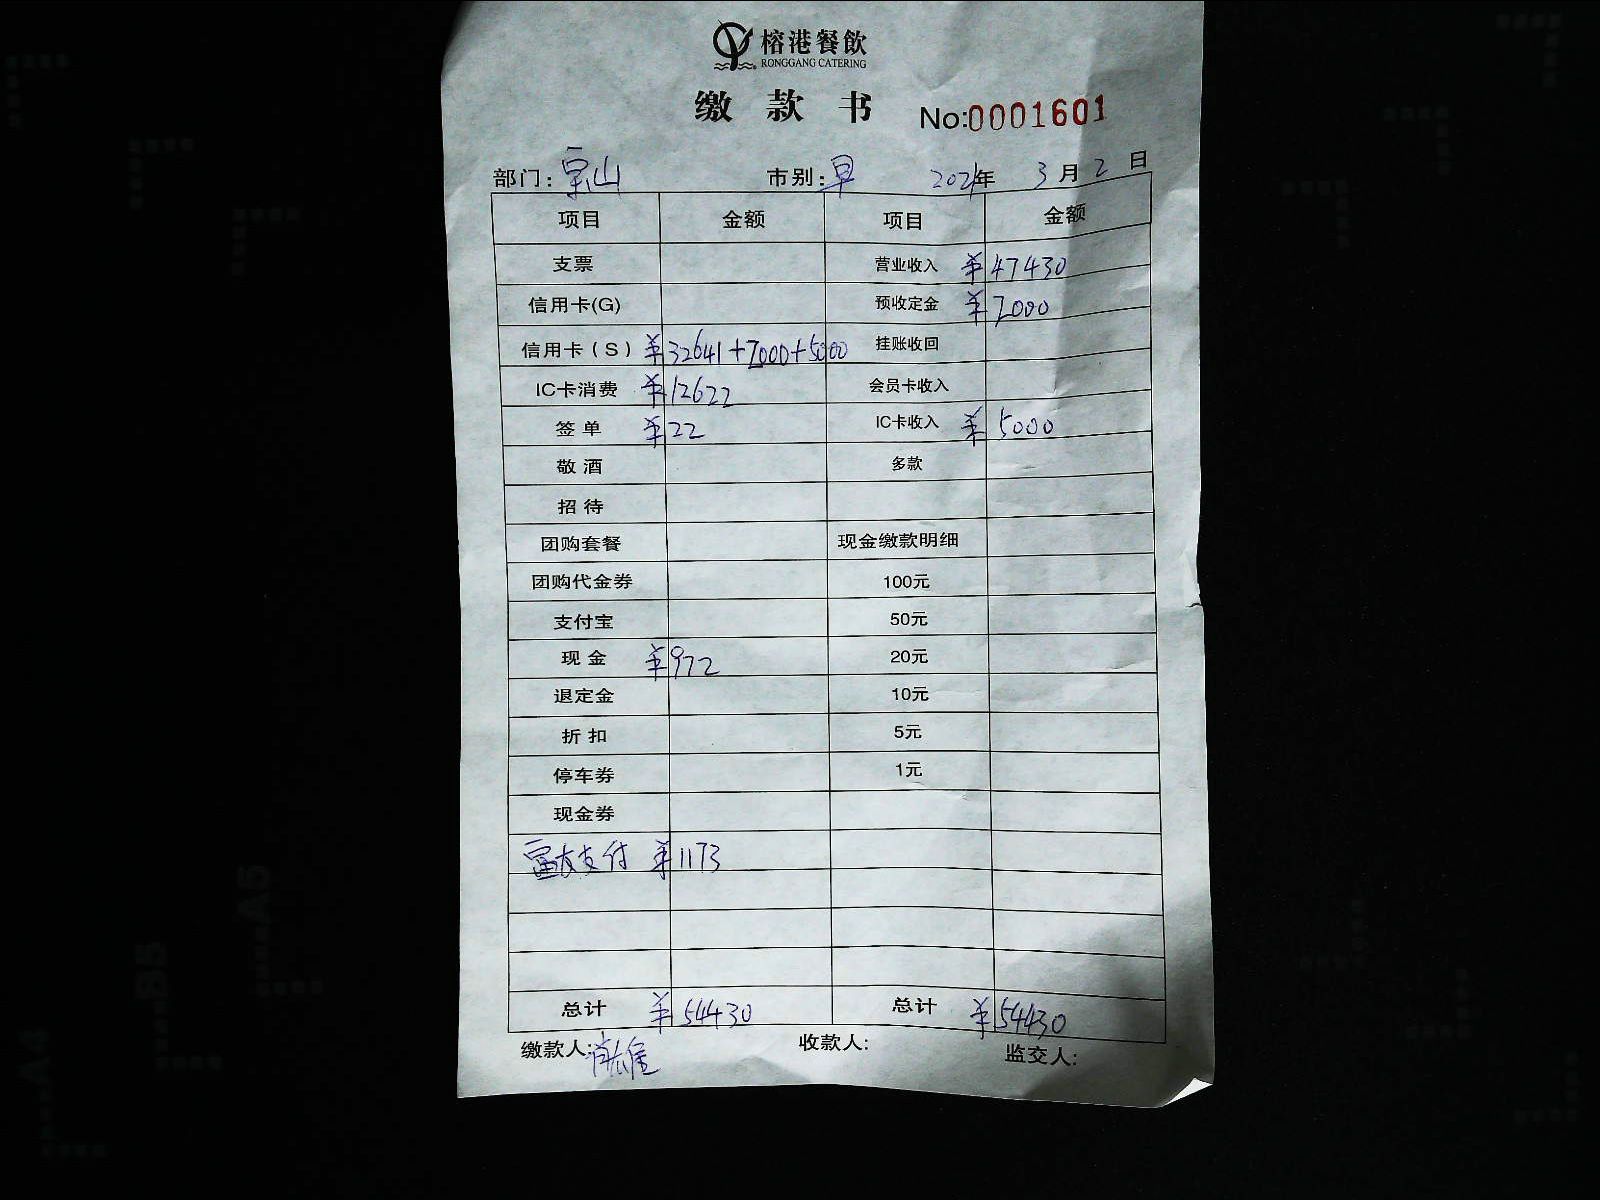 榕港餐飲
RONGGANG CATERING
缴款书 No:0001601
部门:宝山 市别:早 2021年 3月2日
项目 金额 项目 金额
支票 营业收入 ¥47430
信用卡(G) 预收定金 ¥2000
信用卡(S) ¥32641+2000+5000 挂账收回
IC卡消费 ¥12622 会员卡收入
签单 ¥22 IC卡收入 ¥5000
敬酒 多款
招待
团购套餐 现金缴款明细
团购代金券 100元
支付宝 50元
现金 ¥972 20元
退定金 10元
折扣 5元
停车券 1元
现金券
富友支付 ¥1173
总计 ¥54430 总计 ¥54430
缴款人: 收款人: 监交人:
A5
B5
A4